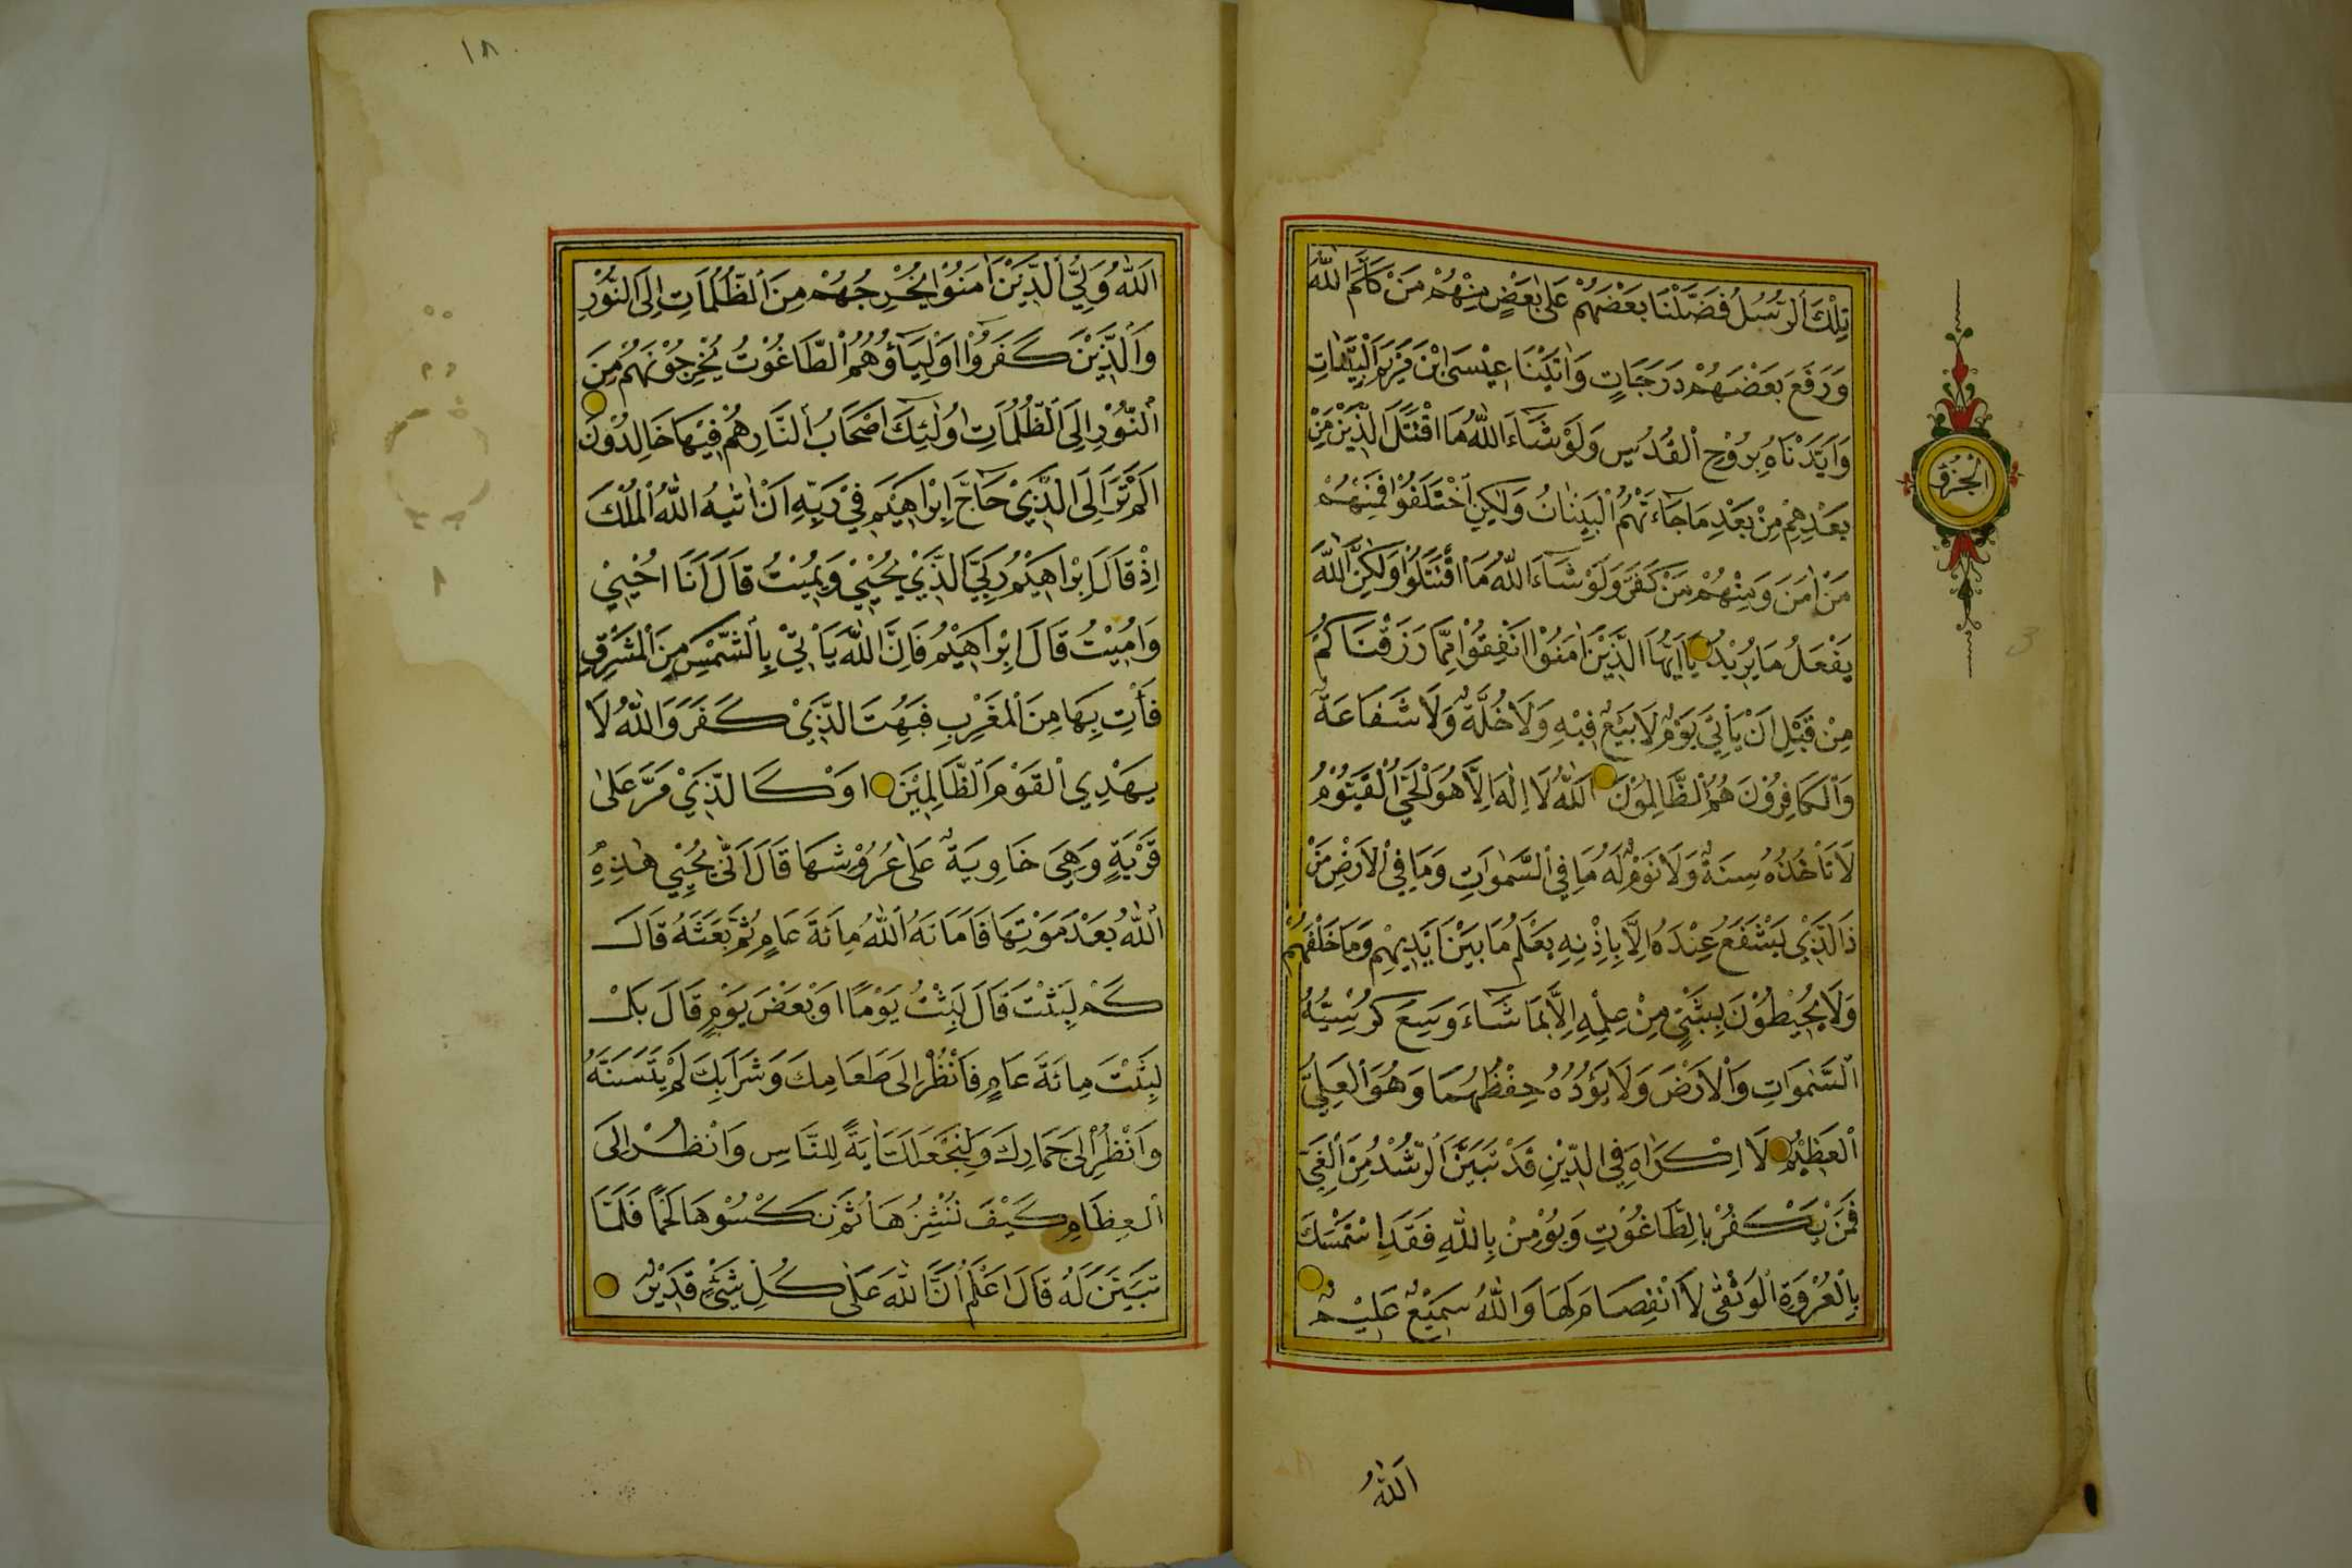 تِلْكَ الرُّسُلُ فَضَّلْنَا بَعْضَهُمْ عَلٰى بَعْضٍ مِنْهُمْ مَنْ كَلَّمَ اللّٰهُ
وَرَفَعَ بَعْضَهُمْ دَرَجَاتٍ وَاٰتَيْنَا عِيْسَى ابْنَ مَرْيَمَ الْبَيِّنَاتِ
وَاَيَّدْنَاهُ بِرُوْحِ الْقُدُسِ وَلَوْ شَاءَ اللّٰهُ مَا اقْتَتَلَ الَّذِيْنَ مِنْ
بَعْدِهِمْ مِنْ بَعْدِ مَا جَاءَتْهُمُ الْبَيِّنَاتُ وَلٰكِنِ اخْتَلَفُوْا فَمِنْهُمْ
مَنْ اٰمَنَ وَمِنْهُمْ مَنْ كَفَرَ وَلَوْ شَاءَ اللّٰهُ مَا اقْتَتَلُوْا وَلٰكِنَّ اللّٰهَ
يَفْعَلُ مَا يُرِيْدُ يَا اَيُّهَا الَّذِيْنَ اٰمَنُوْا اَنْفِقُوْا مِمَّا رَزَقْنَاكُمْ
مِنْ قَبْلِ اَنْ يَأْتِيَ يَوْمٌ لَا بَيْعٌ فِيْهِ وَلَا خُلَّةٌ وَلَا شَفَاعَةٌ
وَالْكَافِرُوْنَ هُمُ الظَّالِمُوْنَ اَللّٰهُ لَا اِلٰهَ اِلَّا هُوَ الْحَيُّ الْقَيُّوْمُ
لَا تَأْخُذُهُ سِنَةٌ وَلَا نَوْمٌ لَهُ مَا فِي السَّمٰوَاتِ وَمَا فِي الْاَرْضِ مَنْ
ذَا الَّذِيْ يَشْفَعُ عِنْدَهُ اِلَّا بِاِذْنِهِ يَعْلَمُ مَا بَيْنَ اَيْدِيْهِمْ وَمَا خَلْفَهُمْ
وَلَا يُحِيْطُوْنَ بِشَيْءٍ مِنْ عِلْمِهِ اِلَّا بِمَا شَاءَ وَسِعَ كُرْسِيُّهُ
السَّمٰوَاتِ وَالْاَرْضَ وَلَا يَؤُدُهُ حِفْظُهُمَا وَهُوَ الْعَلِيُّ
الْعَظِيْمُ لَا اِكْرَاهَ فِي الدِّيْنِ قَدْ تَبَيَّنَ الرُّشْدُ مِنَ الْغَيِّ
فَمَنْ يَكْفُرْ بِالطَّاغُوْتِ وَيُؤْمِنْ بِاللّٰهِ فَقَدِ اسْتَمْسَكَ
بِالْعُرْوَةِ الْوُثْقٰى لَا انْفِصَامَ لَهَا وَاللّٰهُ سَمِيْعٌ عَلِيْمٌ
اَللّٰهُ
١٨
اَللّٰهُ وَلِيُّ الَّذِيْنَ اٰمَنُوْا يُخْرِجُهُمْ مِنَ الظُّلُمَاتِ اِلَى النُّوْرِ
وَالَّذِيْنَ كَفَرُوْا اَوْلِيَاؤُهُمُ الطَّاغُوْتُ يُخْرِجُوْنَهُمْ مِنَ
النُّوْرِ اِلَى الظُّلُمَاتِ اُولٰئِكَ اَصْحَابُ النَّارِ هُمْ فِيْهَا خَالِدُوْنَ
اَلَمْ تَرَ اِلَى الَّذِيْ حَاجَّ اِبْرَاهِيْمَ فِيْ رَبِّهِ اَنْ اٰتٰيهُ اللّٰهُ الْمُلْكَ
اِذْ قَالَ اِبْرَاهِيْمُ رَبِّيَ الَّذِيْ يُحْيِيْ وَيُمِيْتُ قَالَ اَنَا اُحْيِيْ
وَاُمِيْتُ قَالَ اِبْرَاهِيْمُ فَاِنَّ اللّٰهَ يَأْتِيْ بِالشَّمْسِ مِنَ الْمَشْرِقِ
فَأْتِ بِهَا مِنَ الْمَغْرِبِ فَبُهِتَ الَّذِيْ كَفَرَ وَاللّٰهُ لَا
يَهْدِي الْقَوْمَ الظَّالِمِيْنَ اَوْ كَالَّذِيْ مَرَّ عَلٰى
قَرْيَةٍ وَهِيَ خَاوِيَةٌ عَلٰى عُرُوْشِهَا قَالَ اَنّٰى يُحْيِيْ هٰذِهِ
اللّٰهُ بَعْدَ مَوْتِهَا فَاَمَاتَهُ اللّٰهُ مِائَةَ عَامٍ ثُمَّ بَعَثَهُ قَالَ
كَمْ لَبِثْتَ قَالَ لَبِثْتُ يَوْمًا اَوْ بَعْضَ يَوْمٍ قَالَ بَلْ
لَبِثْتَ مِائَةَ عَامٍ فَانْظُرْ اِلٰى طَعَامِكَ وَشَرَابِكَ لَمْ يَتَسَنَّهْ
وَانْظُرْ اِلٰى حِمَارِكَ وَلِنَجْعَلَكَ اٰيَةً لِلنَّاسِ وَانْظُرْ اِلَى
الْعِظَامِ كَيْفَ نُنْشِزُهَا ثُمَّ نَكْسُوْهَا لَحْمًا فَلَمَّا
تَبَيَّنَ لَهُ قَالَ اَعْلَمُ اَنَّ اللّٰهَ عَلٰى كُلِّ شَيْءٍ قَدِيْرٌ